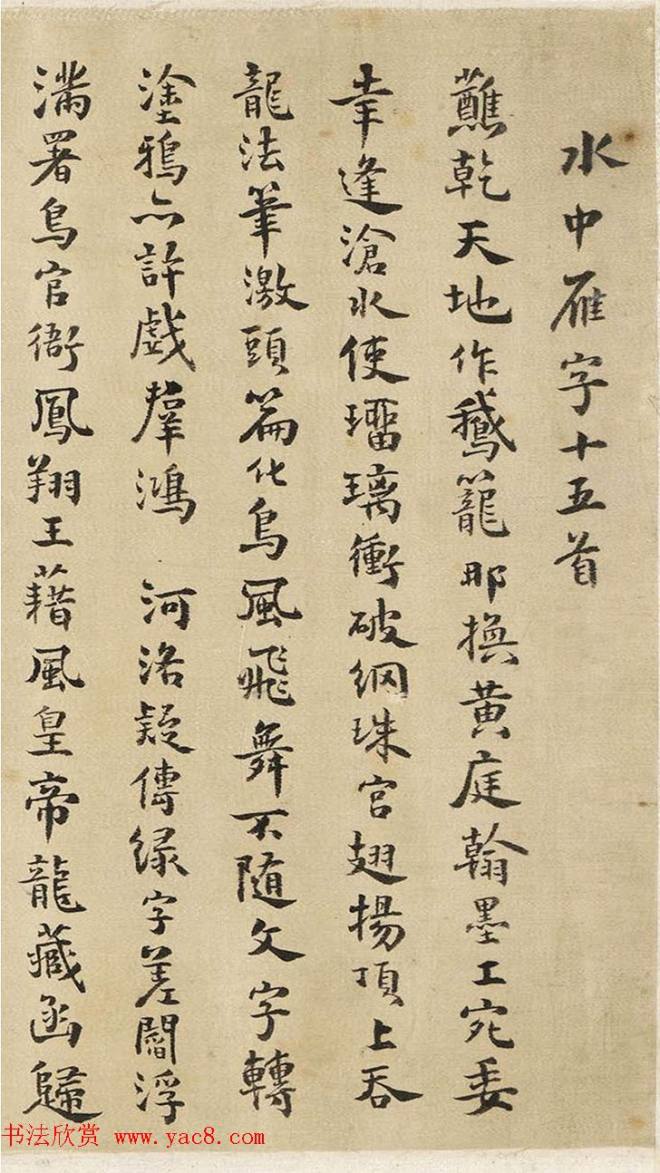 水中雁字十五首
蘸乾天地作鵞籠那換黃庭翰墨工宛委
幸逢滄水使瑠璃衝破網珠宮翅揚頂上吞
龍法筆激頭篇化鳥風飛舞不随文字轉
塗鴉亦許戲羣鴻 河洛疑傳緑字差閻浮
滿署鳥官衙鳳翔王藉風皇帝龍藏函歸
书法欣赏 www.yac8.com